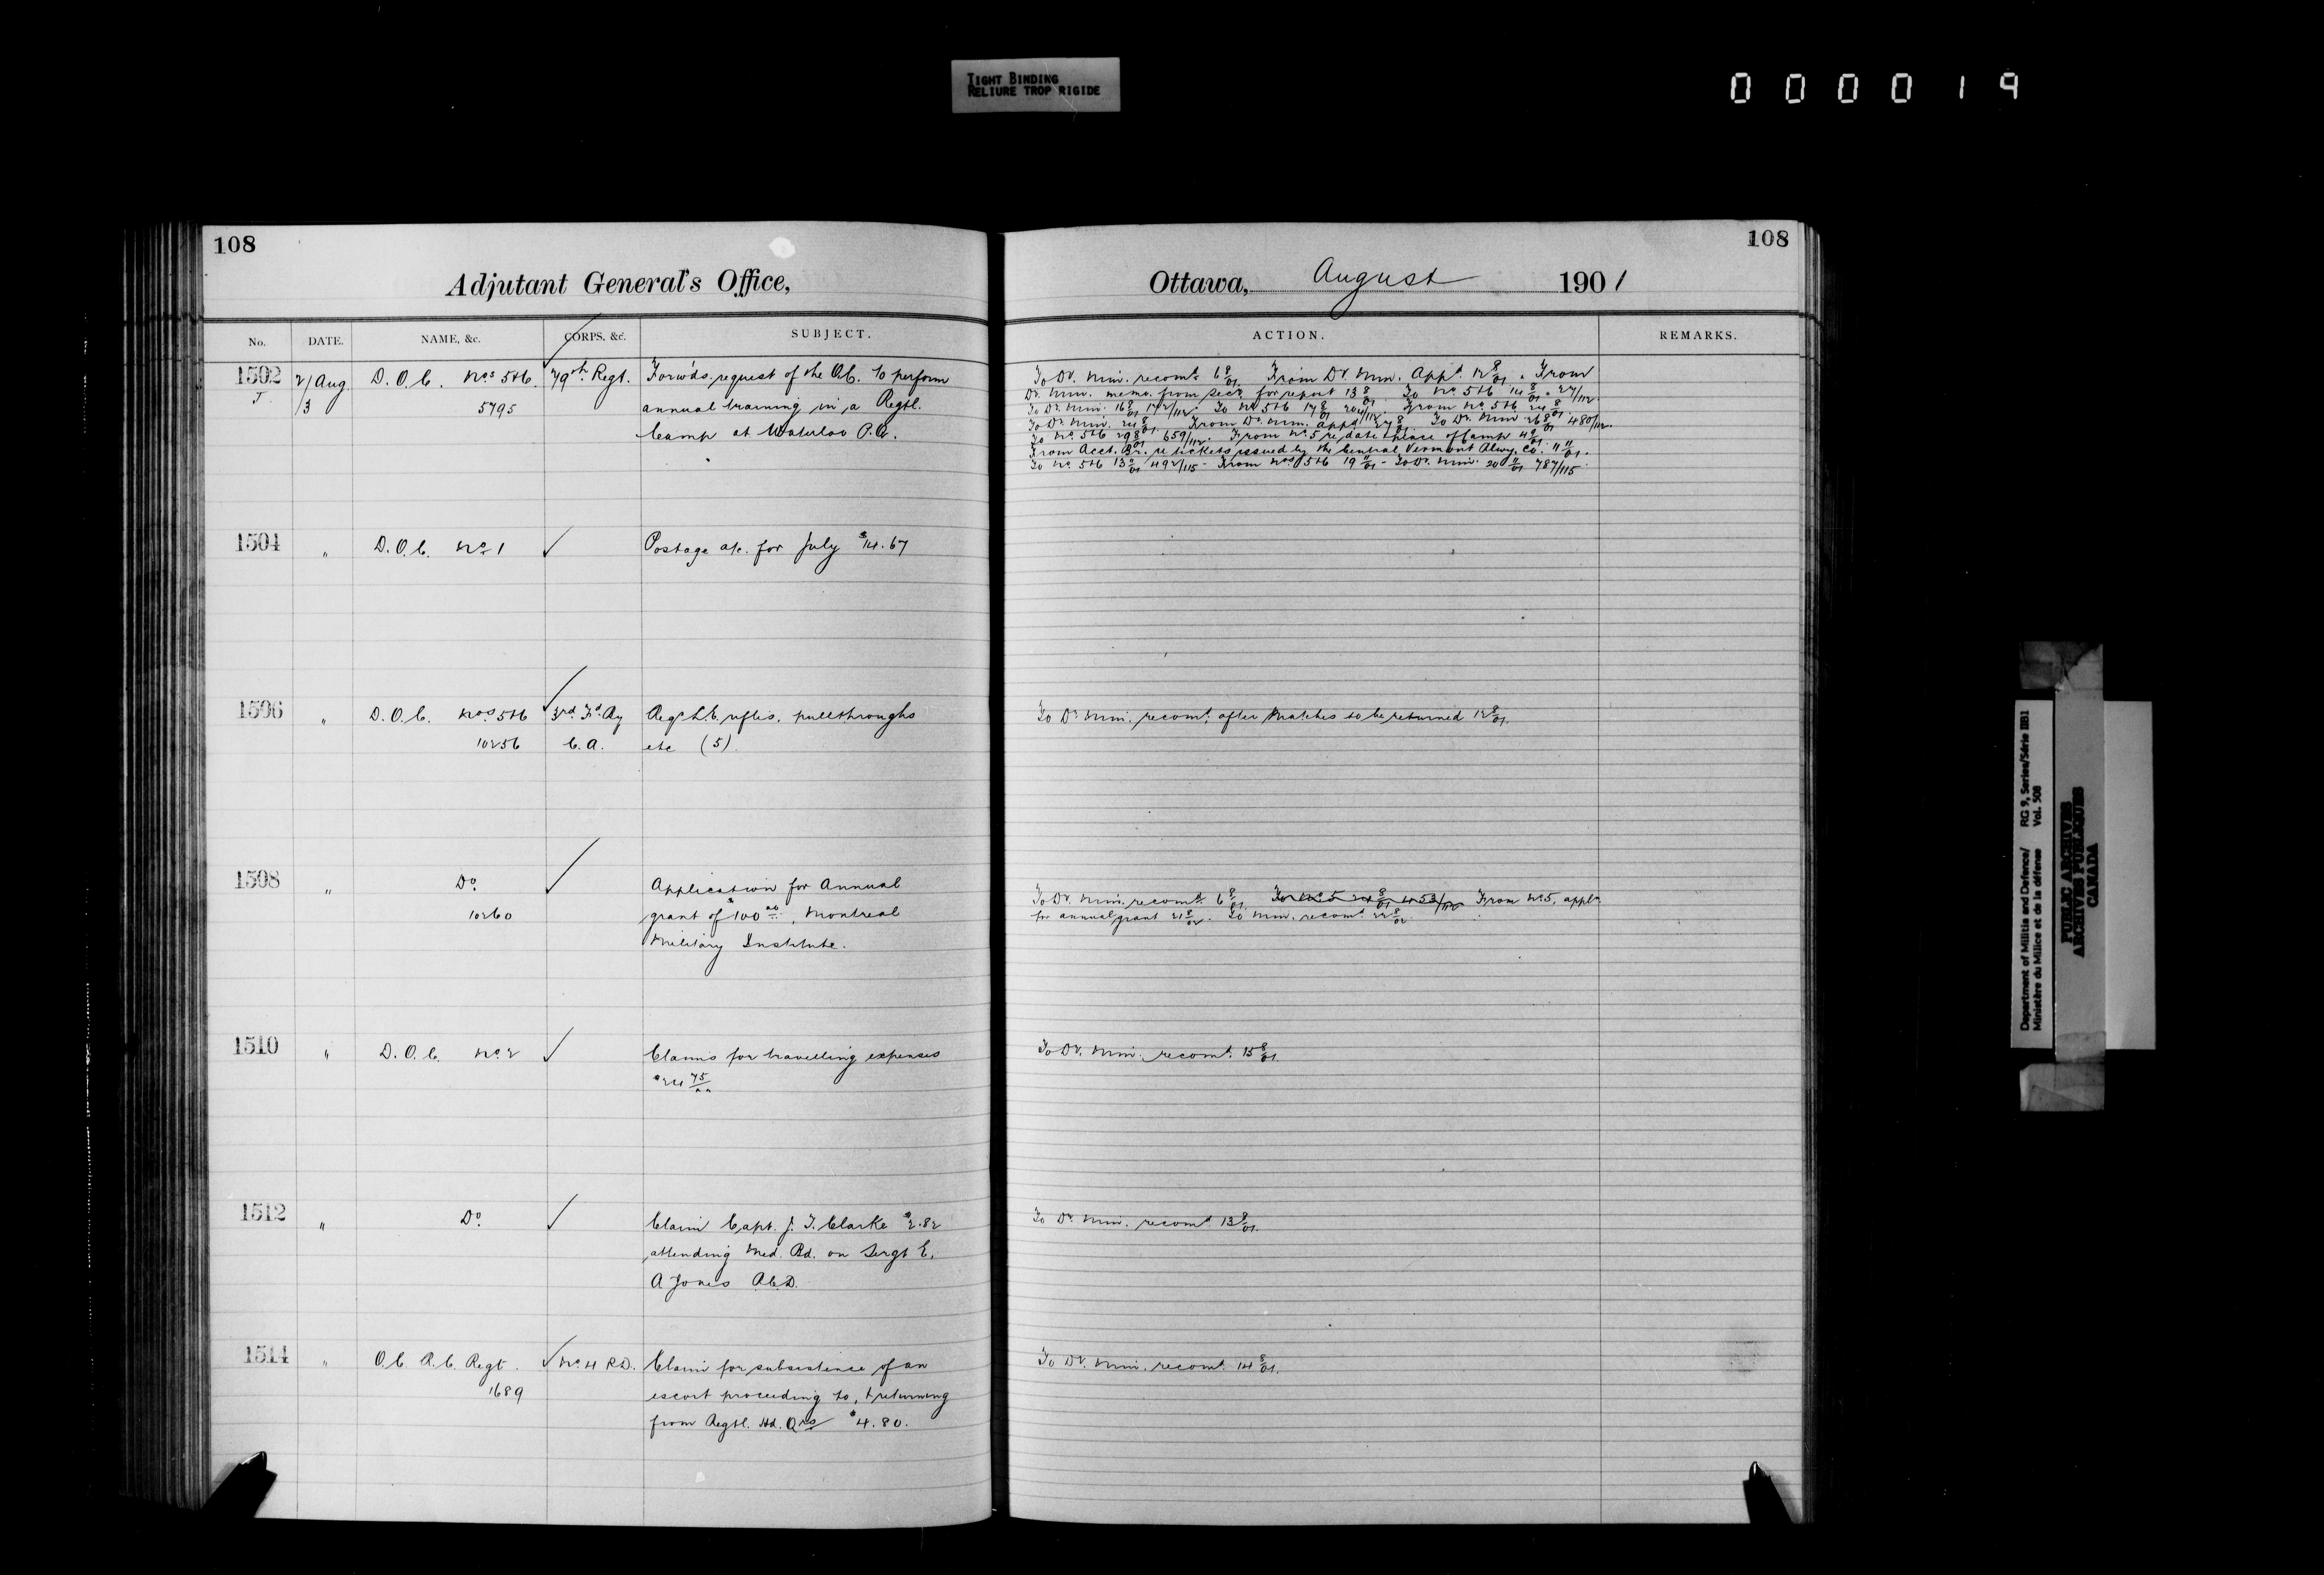 TIGHT BINDING
RELIURE TROP RIGIDE
000019
108
108
Adjutant General's Office,
Ottawa, August 1901
No. DATE. NAME, &c. CORPS, &c. SUBJECT. ACTION. REMARKS.
1502 2/Aug. D.O.C. Nos 5+6. 79th Regt. Forw'ds request of the O.C. to perform
/3 5795 annual training in a Regtl.
Camp at Waterloo P.Q.
To Dr. Min. recomd. 6 8/01. From Dr. Min. Appd. 12 8/01. From
Dr. Min. memo. from Secy. for report 13 8/01. To No. 5+6 14 8/01. 27/112.
To Dr. Min. 16 8/01 172/112. To No 5+6 17 8/01 204/112. From No. 5+6 24 8/01.
To Dr. Min. 24 8/01. From Dr. Min. appd. 27 8/01. To Dr. Min 26 8/01 480/112.
To No. 5+6 29 8/01 659/112. From No. 5 re date + place of Camp 4 9/01.
From Acct. Br. re tickets issued by the Central Vermont Rlwy. Co. 11/01.
To No 5+6 13 11/01 492/115 - From Nos 5+6 19 11/01 - To Dr. Min. 20 11/01 787/115.
1504 " D.O.C. No. 1 Postage a/c. for July $14.67
1506 " D.O.C. Nos. 5+6 3rd Fd. By Reqs L.E. rifles, pullthroughs
10256 C.A. etc (5).
To Dr Min. recomd. after Matches to be returned 12 8/01.
1508 " Do. Application for Annual
10260 grant of $100 00, Montreal
Military Institute.
To Dr. Min. recomd. 6 8/01. To No. 5 24 8/01 453/112 From No. 5, appln.
for annual grant 21 8/02. To Min. recomd. 22 8/02
1510 " D.O.C. No. 2 Claims for travelling expenses
$24 75
To Dr. Min. recomd. 15 8/01.
1512 " Do. Claim Capt. J. T. Clarke $2.82
attending Med. Bd. on Sergt E.
A Jones R.C.D.
To Dr. Min. recomd 13 8/01.
1514 " O.C. R.C. Regt. No. 4 R.D. Claim for subsistence of an
1689 escort proceeding to, + returning
from Regtl. Hd. Qrs $4.80.
To Dr. Min. recomd. 14 8/01.
Department of Militia and Defence/ RG 9, Series/Série IIB1
Ministère du Milice et de la défense Vol. 508
PUBLIC ARCHIVES
ARCHIVES PUBLIQUES
CANADA